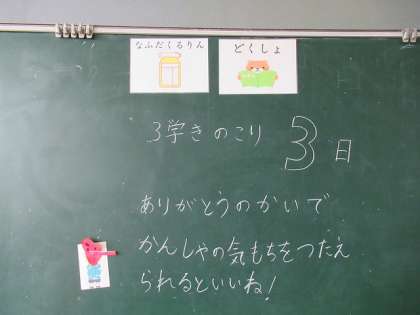 なふだくるりん
どくしょ
3学きのこり 3日
ありがとうのかいで
かんしゃの気もちをつたえ
られるといいね!